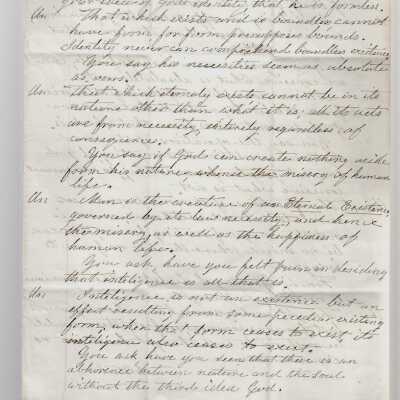 your idea of God's identity, that he is formless.
An: That which exists and is boundless cannot
have form, for form presupposes bounds.
Identity never can comprehend boundless existence
You say his necessities seem as absolute
as ours.
An: That which eternaly exists cannot be in its
nature other than what it is, all its acts
are from necessity, entirely regardless of
consequence.
You say if God can create nothing aside
from his nature whence the misery of human
life.
An: Man is the creature of an Eternal Existence
governed by its law necessity, and hence
the misery as well as the happiness of
human life.
You ask have you felt pain in deciding
that inteligence is all that is.
An: Inteligence is not an existence but an
effect resulting from some peculiar existing
form, when that form ceases to exist, its
inteligence also ceases to exist.
You ask have you seen that there is an
abhorence between nature and the soul
without the third idea God.